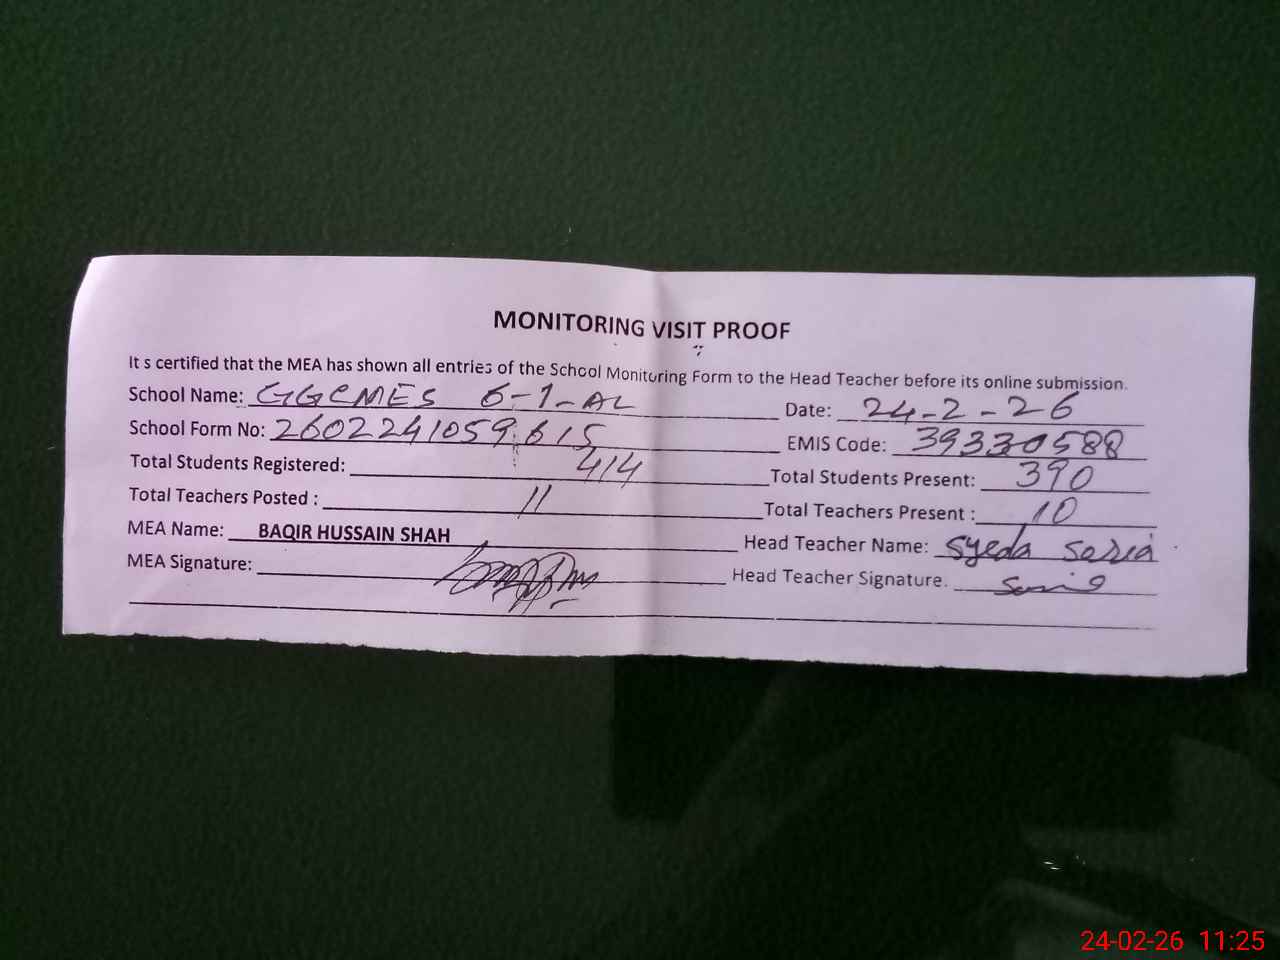 MONITORING VISIT PROOF
It s certified that the MEA has shown all entries of the School Monitoring Form to the Head Teacher before its online submission.
School Name: GGCMES 6-1-AL Date: 24-2-26
School Form No: 2602241059615 EMIS Code: 39330588
Total Students Registered: 414 Total Students Present: 390
Total Teachers Posted : 11 Total Teachers Present : 10
MEA Name: BAQIR HUSSAIN SHAH Head Teacher Name: Syeda
MEA Signature: Head Teacher Signature.
24-02-26 11:25